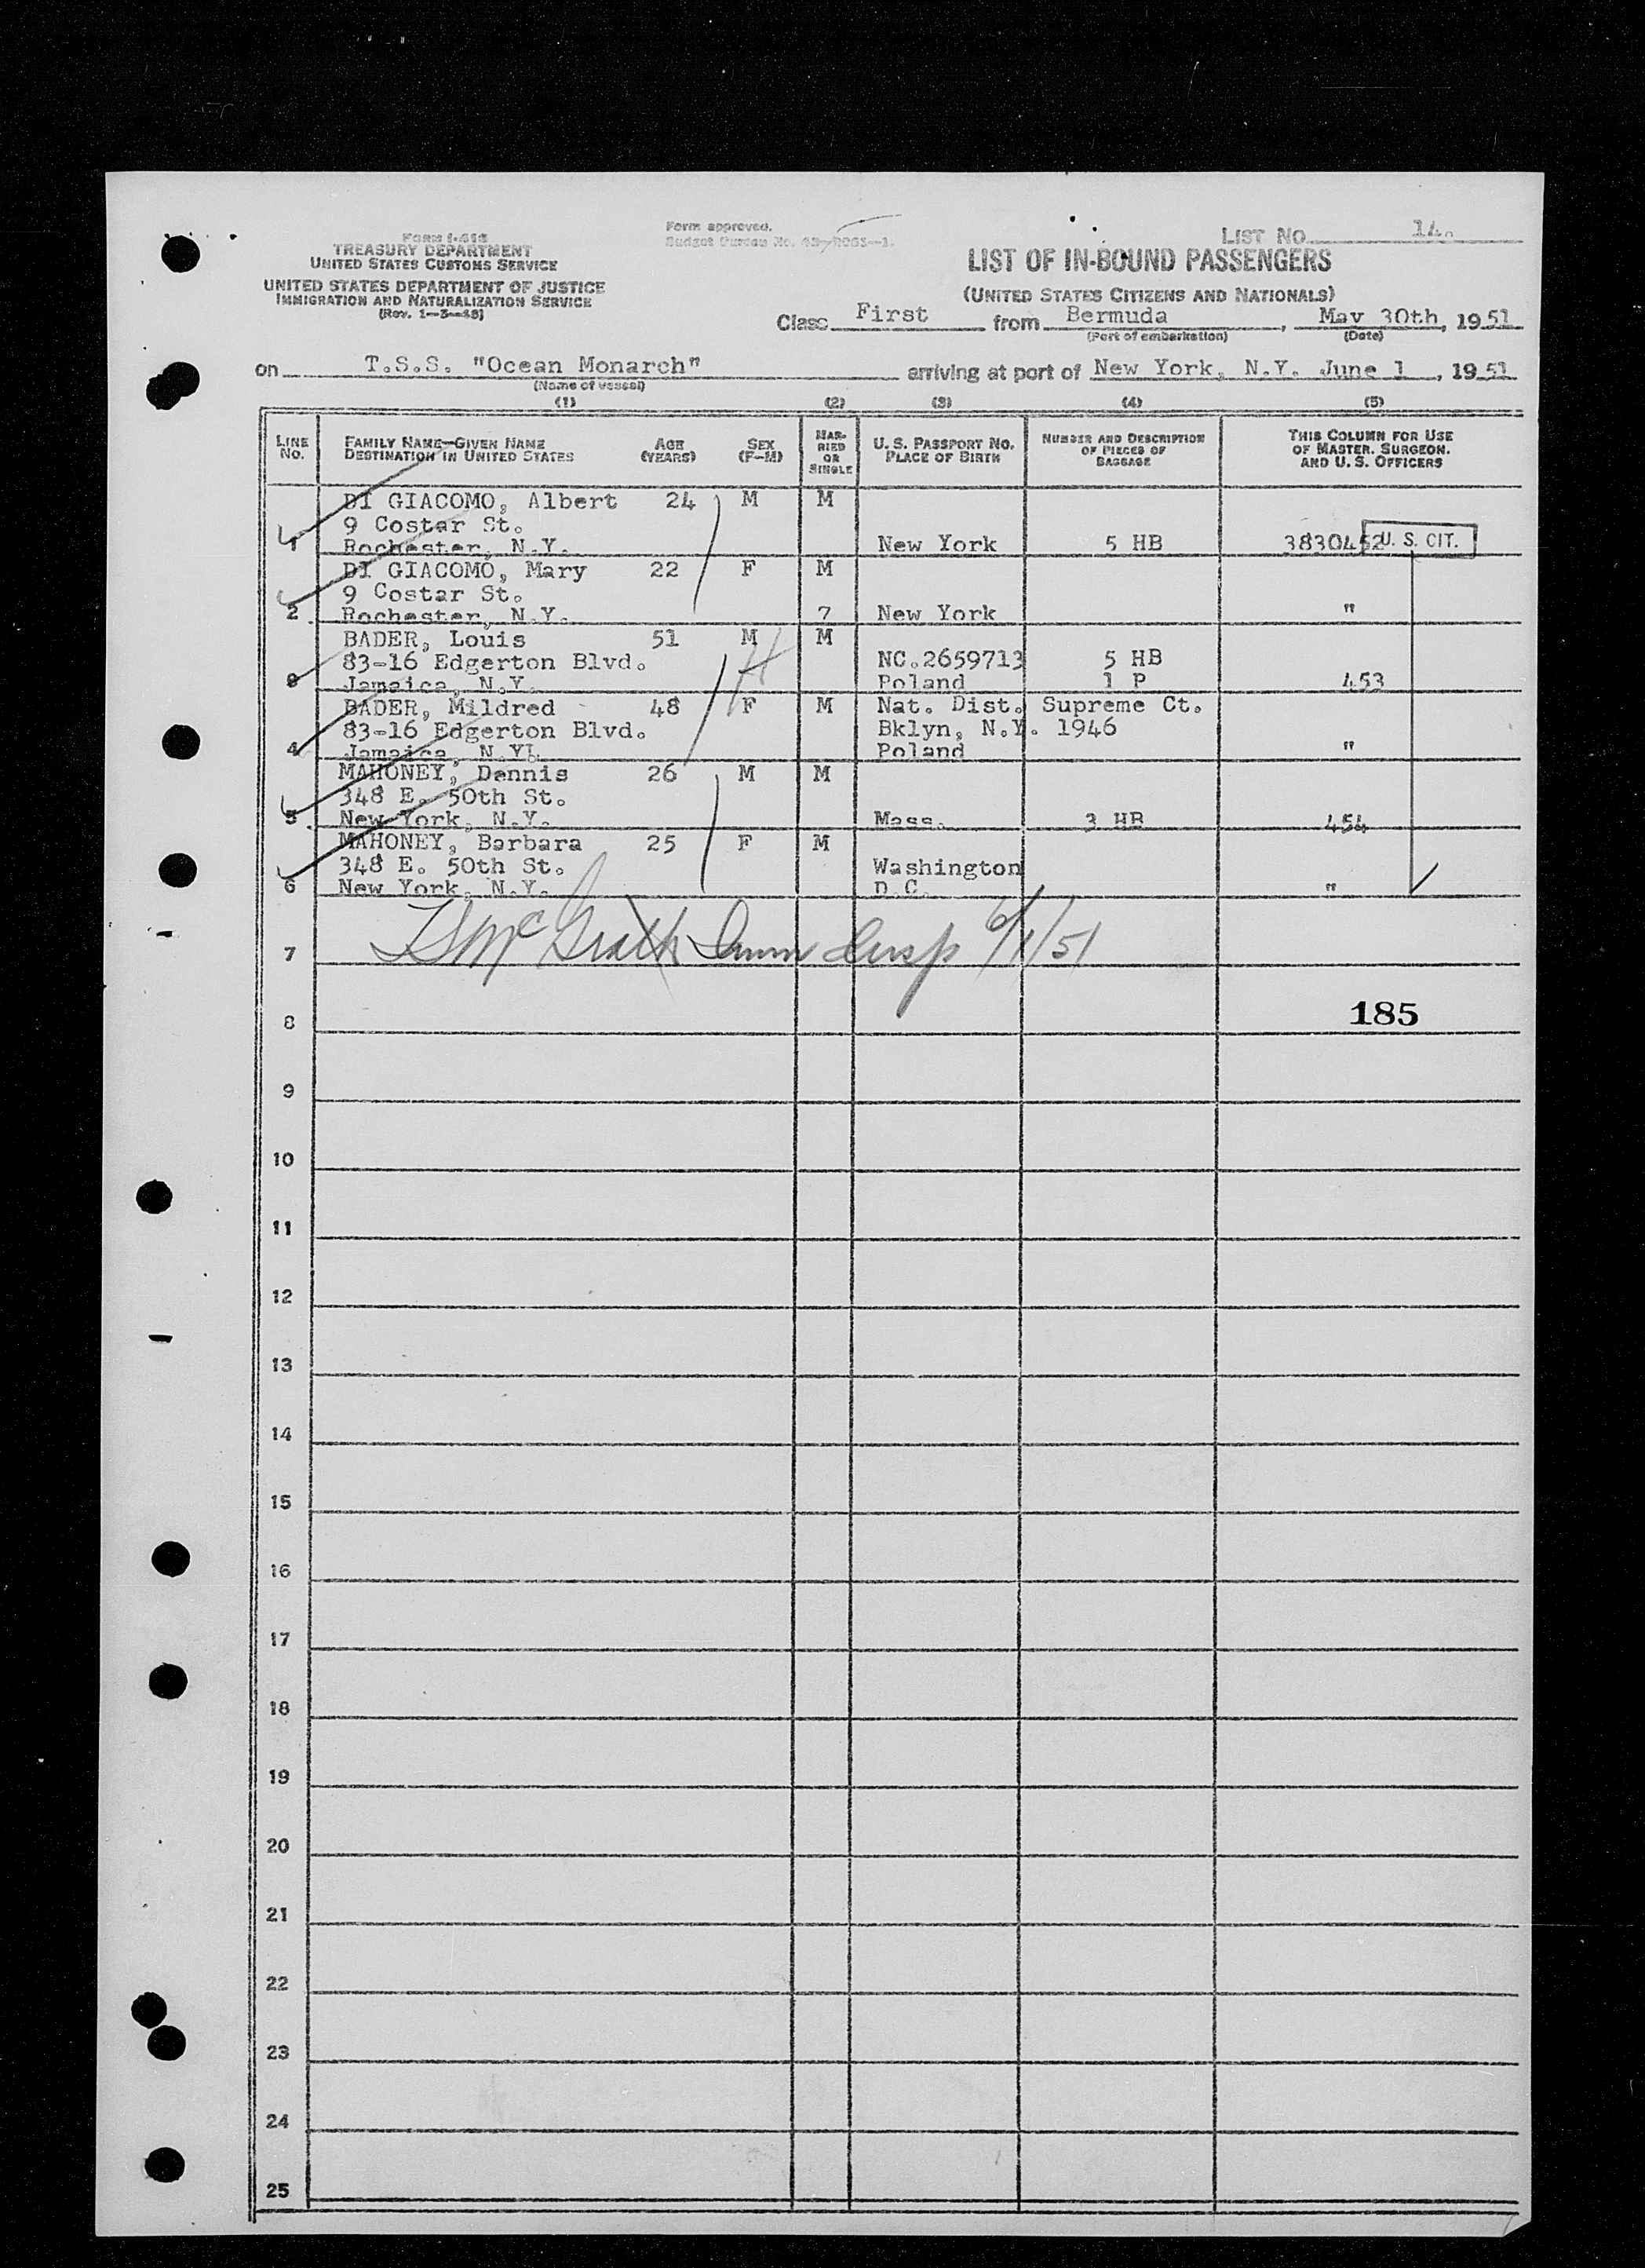 Form I-416
TREASURY DEPARTMENT
UNITED STATES CUSTOMS SERVICE
UNITED STATES DEPARTMENT OF JUSTICE
IMMIGRATION AND NATURALIZATION SERVICE
(Rev. 1-3-48)
Form approved.
Budget Bureau No.
LIST NO. 14.
LIST OF IN-BOUND PASSENGERS
(UNITED STATES CITIZENS AND NATIONALS)
Class First from Bermuda, May 30th, 1951
(Port of embarkation) (Date)
on T.S.S. "Ocean Monarch" arriving at port of New York, N.Y. June 1, 1951
(Name of vessel)
(1) (2) (3) (4) (5)
LINE NO. FAMILY NAME—GIVEN NAME DESTINATION IN UNITED STATES AGE (YEARS) SEX (F-M) MARRIED OR SINGLE U. S. PASSPORT NO. PLACE OF BIRTH NUMBER AND DESCRIPTION OF PIECES OF BAGGAGE THIS COLUMN FOR USE OF MASTER. SURGEON. AND U. S. OFFICERS
DI GIACOMO, Albert 24 M M
9 Costar St.
1 Rochester, N.Y. New York 5 HB 3830452 U. S. CIT.
DI GIACOMO, Mary 22 F M
9 Costar St.
2 Rochester, N.Y. 7 New York "
BADER, Louis 51 M M
83-16 Edgerton Blvd. NC.2659713 5 HB
3 Jamaica, N.Y. Poland 1 P 453
BADER, Mildred 48 F M Nat. Dist. Supreme Ct.
83-16 Edgerton Blvd. Bklyn, N.Y. 1946
4 Jamaica, N.Y. Poland "
MAHONEY, Dennis 26 M M
348 E. 50th St.
5 New York, N.Y. Mass. 3 HB 454
MAHONEY, Barbara 25 F M
348 E. 50th St. Washington
6 New York, N.Y. D.C. "
McGrath Imm Insp 6/1/51
7
185
8
9
10
11
12
13
14
15
16
17
18
19
20
21
22
23
24
25